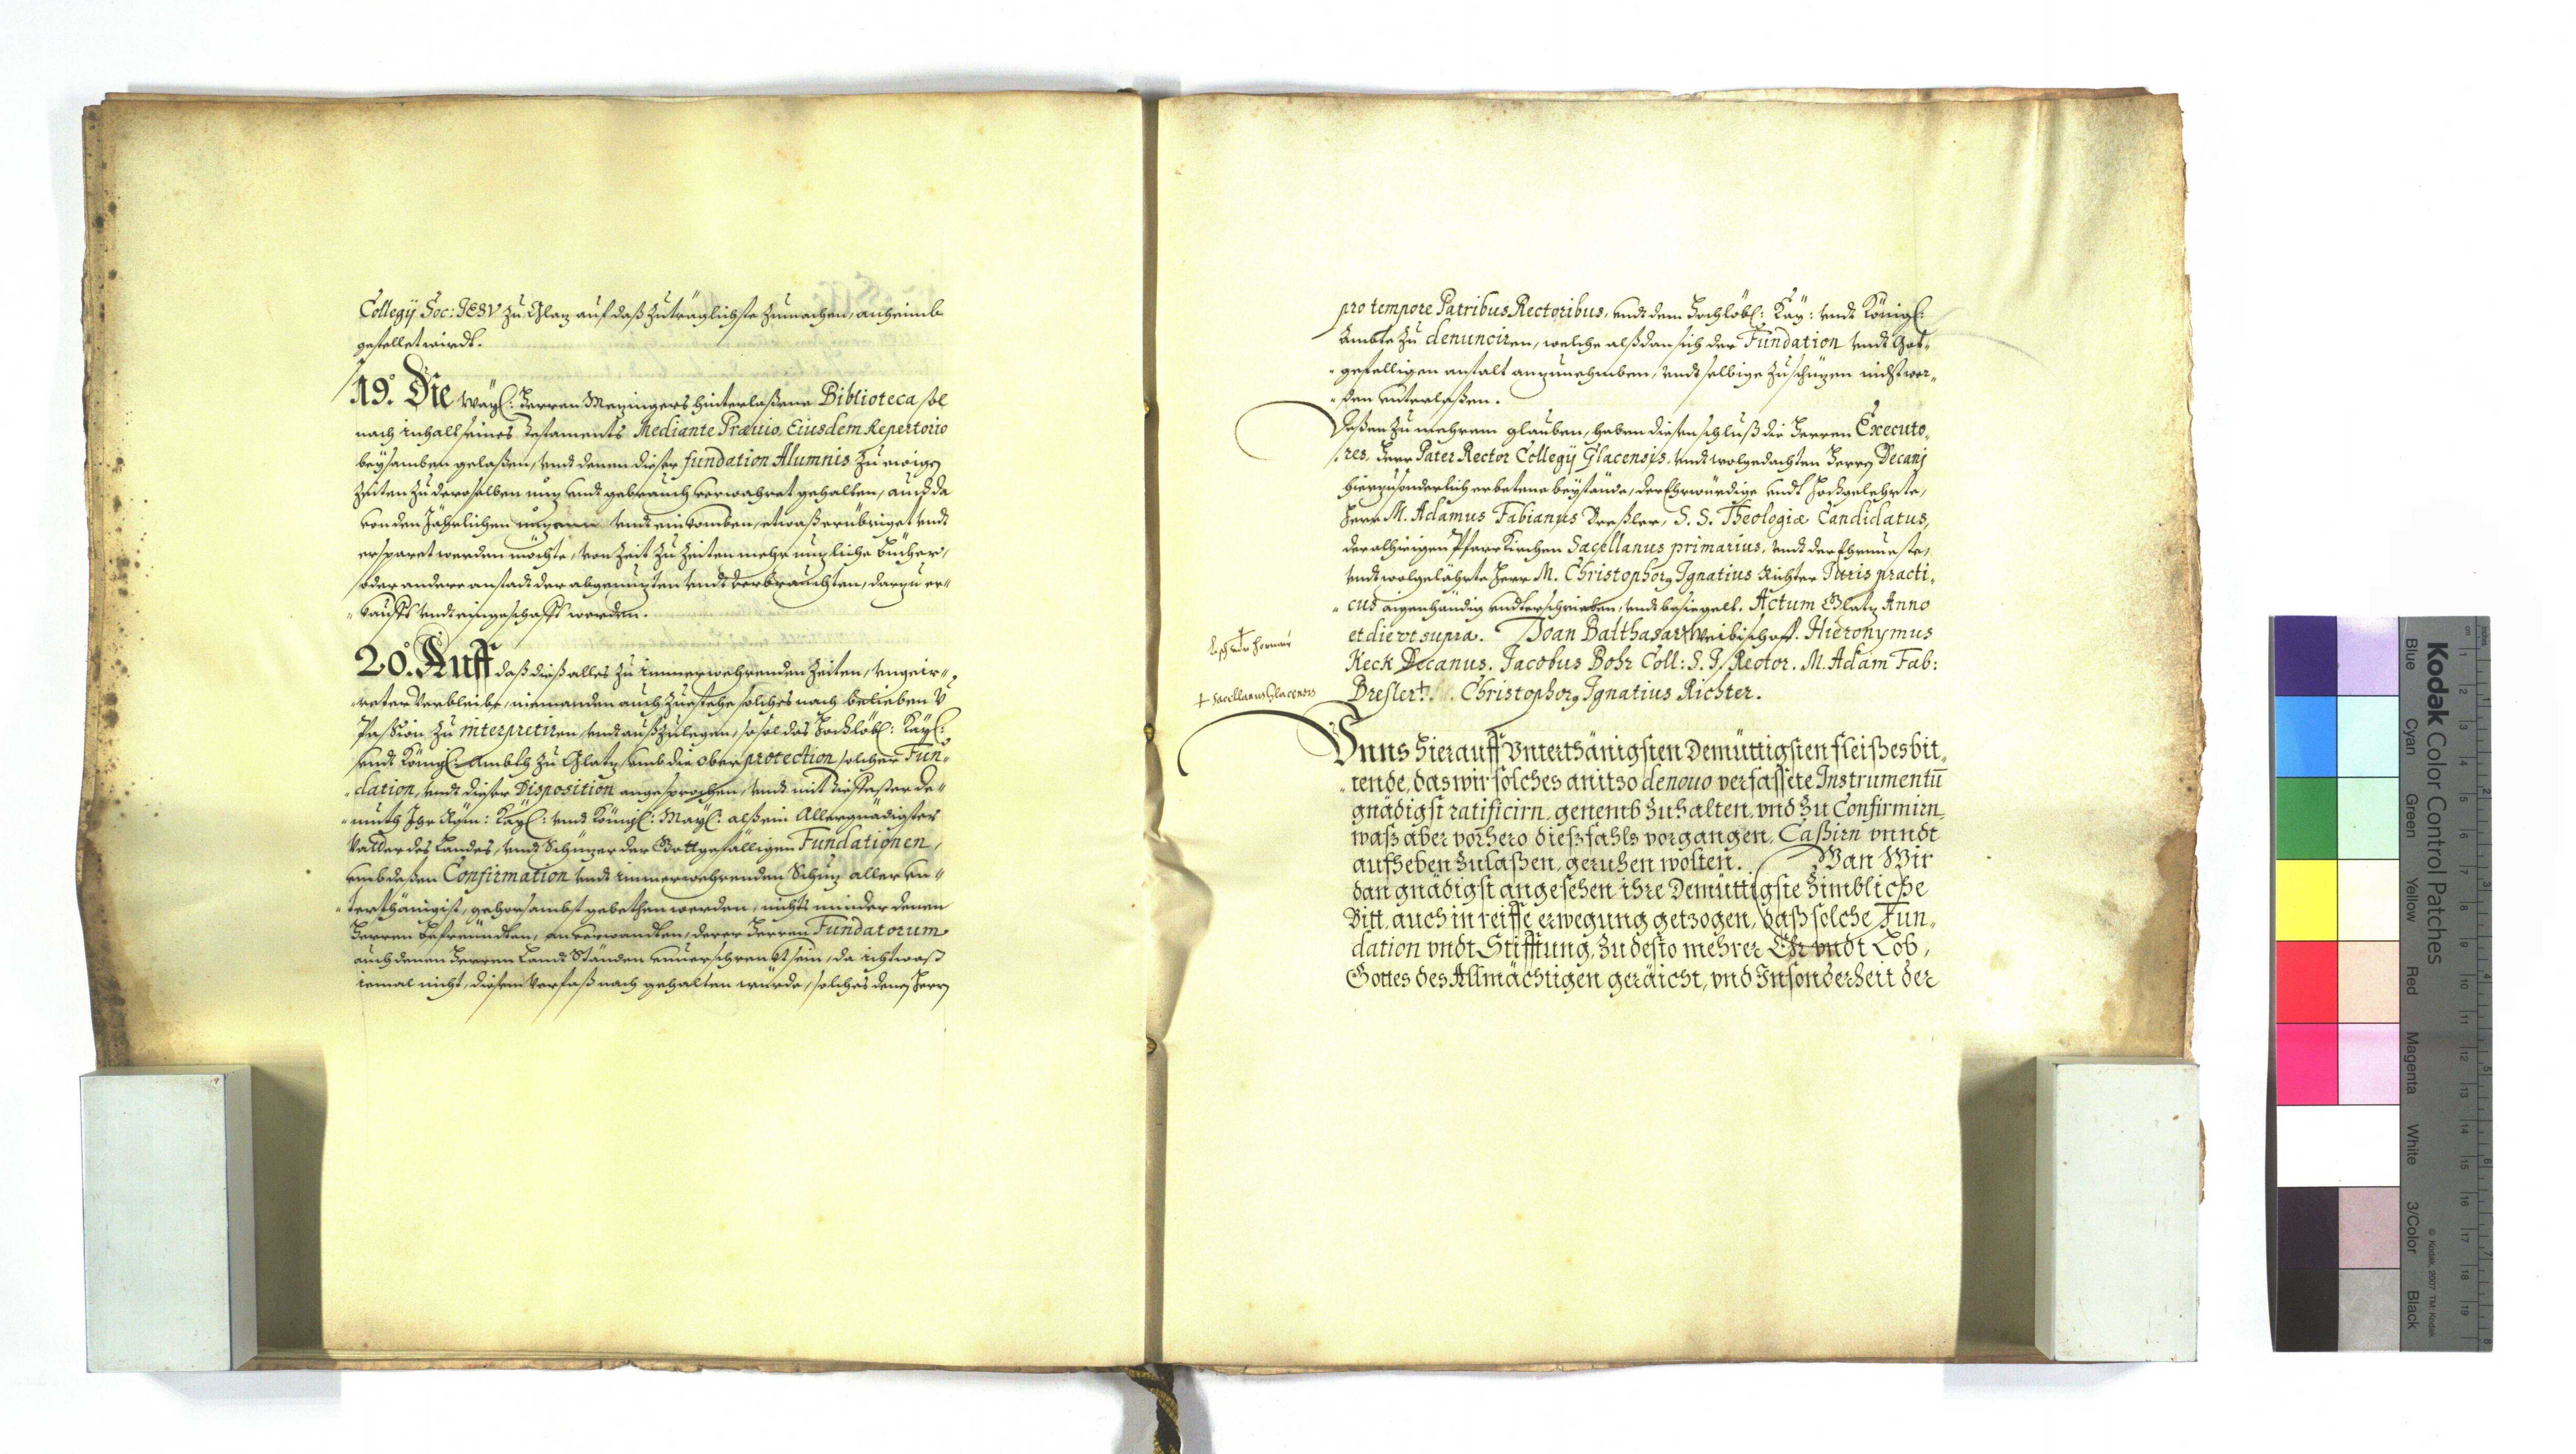 Collegÿ Soc: JESV zu Glaz auf daß zuträglichste zumachen, anheimb
gestellet wirdt.
19.º Die Wayl: Herren Mezingers hinterlaßene Biblioteca sol
nach inhalt seines Testaments Mediante Præuio, Eiusdem Repertorio
beÿsamben gelaßen, vndt denen dieser fundation Alumnis zu ewigen
zeiten zu deroselben nuz vndt gebrauch verwahret gehalten, auch da
von den Jährlichen vndt einkomben, etwaß erübriget vndt
ersparet werden möchte, von zeit zu zeiten mehr nuzliche Bücher,
oder andere anstadt der abgenuzten vndt verbrauchten, darzu er-
kaufft vndt eingeschafft werden.
20.º Auff daß dieß alles zu immerwehrenden zeiten, vngeir-
reter Verbleibe, niemanden auch zuestehe solches nach belieben v̄
Passion zu interpretiren vndt außzulegen, so sol das Hochlöbl: Kaÿl:
vndt Königl: Ambth zu Glatz vmb die ober protection solcher Fun-
dation, vndt dieser Disposition angesprochen, vndt mit tieffester de-
muth Ihr Röm: Kaÿl: vndt Königl: Maÿl: alß ein Allergnädigster
Vatter des Landes, vndt Schüzer der Gottgefälligen Fundationen,
vmb deßen Confirmation vndt immerwehrenden Schuz aller vn-
terthänigist, gehorsambst gebethen werden, nichts minder denen
Herren befreündten, anverwandten, derer Herren Fundatorum
auch denen Herren Landt Ständen vnverschrenckt sein, da ichtwaß
iemal nicht, diesem Verfaß nach gehalten würde, solches denen Herrn
pro tempore Patribus Rectoribus, vndt dem Hochlöbl: Kaÿ: vndt Königl:
Ambte zu denunciren, welche alßdan sich der Fundation vndt Gott-
gefelligen anstalt anzunehmben, vndt selbige zu schüzen nicht wer-
den vnterlaßen.
Deßen zu mehrem glauben, haben diesen schluß die Herren Executo-
res, Herr Pater Rector Collegÿ Glacensis, vndt wolgedachten Herrn Decani
hierzu sonderlich erbetene beÿstände, der Ehrwürdige vndt Hochgelehrte,
Herr M. Adamus Fabianus Breßler, S. S. Theologiæ Candidatus,
der alhiesigen Pfarr Kirchen Sacellanus primarius, vndt der Ehrnueste,
vndt wolgelährte Herr M. Christophorꝫ Ignatius Richter Juris practi-
cus aigenhändig vndterschrieben, vndt besiegelt. Actum Glatz Anno
et die vt supra. Joan Balthasar Weibischoff. Hieronymus
Keck Decanus. Jacobus Bohr Coll: S. J. Rector. M. Adam Fab:
+ Sacellanus Glacensis
Bresler +. Christophorꝫ Ignatius Richter.
Vnns hierauff Vnterthänigsten Demüttigsten fleißes bit-
tende, das wir solches anitzo denouo verfassete Instrumentū
gnädigst ratificirn, genemb zuhalten, vnd zu Confirmirn,
waß aber vorhero dießfahls vorgangen, Caßirn vnndt
aufheben zulaßen, geruhen wolten. Wan Wir
dan gnädigst angesehen ihre Demüttigste Zimbliche
Bitt, auch in reiffe erwegung getzogen, daß solche Fun-
dation vndt Stifftung, zu desto mehrer Ehr vndt Lob,
Gottes des Allmächtigen geräicht, vnd Insonderheit der